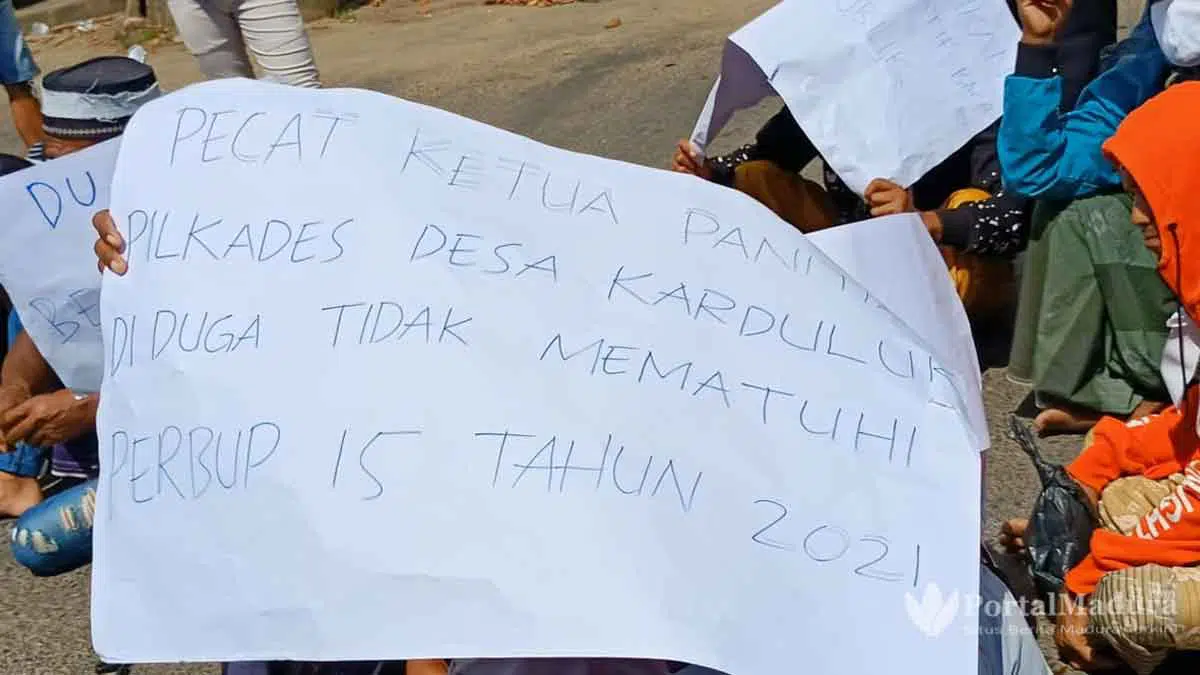 PECAT KETUA PANITIA
PILKADES DESA KARDULUK
DIDUGA TIDAK MEMATUHI
PERBUP 15 TAHUN 2021
DU
BE
PortalMadura
Situs Berita Madura